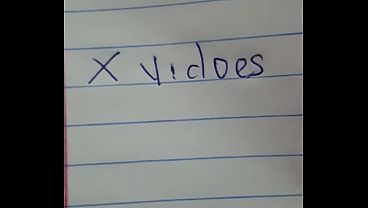 X Vidoes